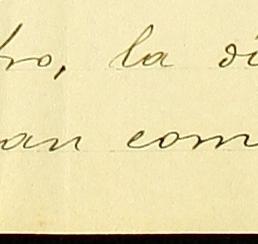 tro, la di
an com